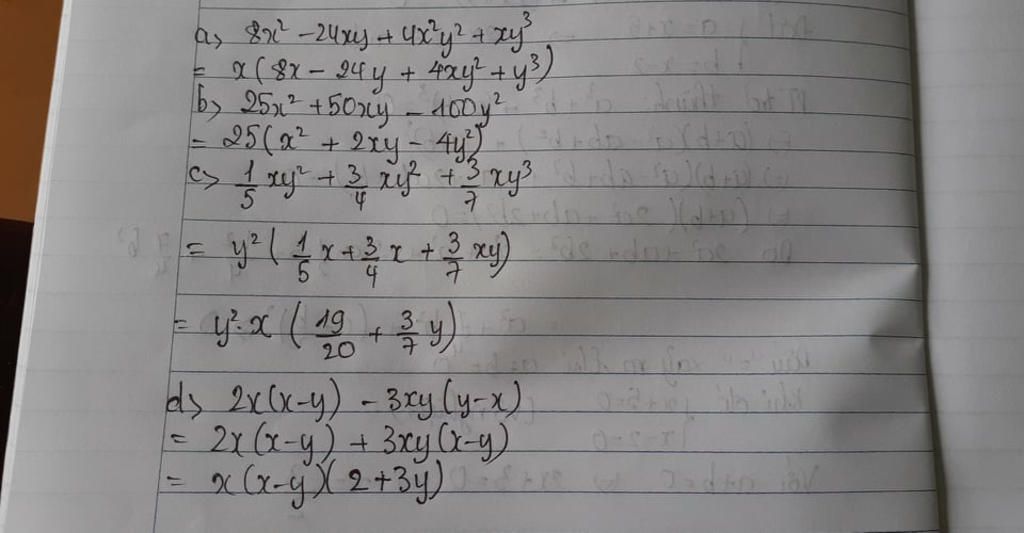 a, 8x² - 24xy + 4x²y² + xy³
= x(8x - 24y + 4xy² + y³)
b, 25x² + 50xy - 100y²
= 25(x² + 2xy - 4y²)
c, 1/5 xy² + 3/4 xy² + 3/7 xy³
= y²(1/5 x + 3/4 x + 3/7 xy)
= y².x (19/20 + 3/7 y)
d, 2x(x-y) - 3xy(y-x)
= 2x(x-y) + 3xy(x-y)
= x(x-y)(2+3y)